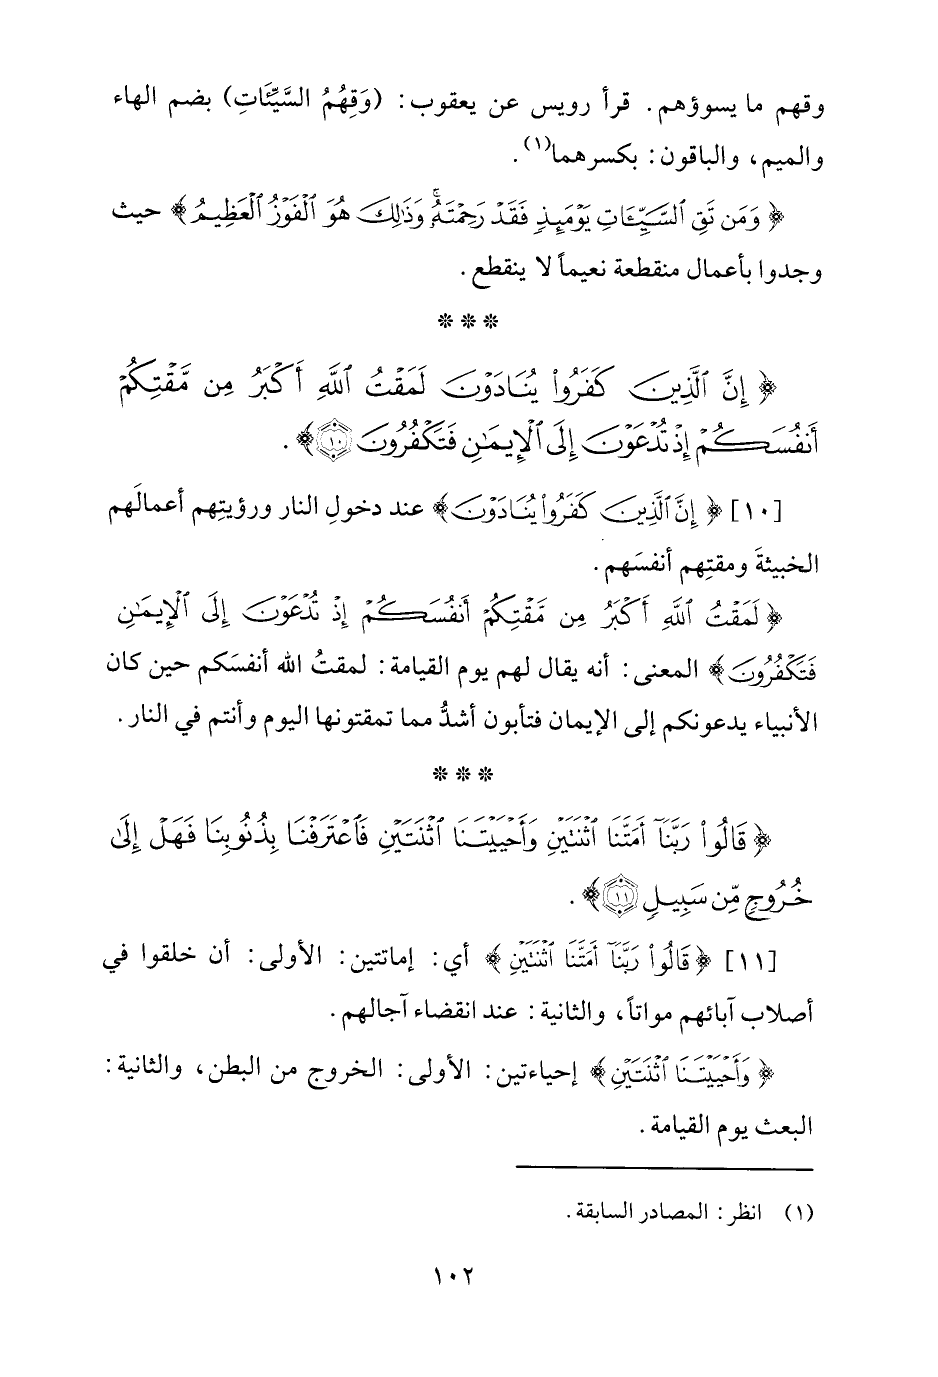 وقهم ما يسوؤهم. قرأ رويس عن يعقوب: (وَقِهُمُ السَّيِّئَاتِ) بضم الهاء
والميم، والباقون: بكسرهما(١).
﴿وَمَن تَقِ ٱلسَّيِّـَٔاتِ يَوْمَئِذٍ فَقَدْ رَحِمْتَهُۥۚ وَذَٰلِكَ هُوَ ٱلْفَوْزُ ٱلْعَظِيمُ﴾ حيث
وجدوا بأعمال منقطعة نعيماً لا ينقطع.
* * *
﴿إِنَّ ٱلَّذِينَ كَفَرُوا۟ يُنَادَوْنَ لَمَقْتُ ٱللَّهِ أَكْبَرُ مِن مَّقْتِكُمْ
أَنفُسَكُمْ إِذْ تُدْعَوْنَ إِلَى ٱلْإِيمَٰنِ فَتَكْفُرُونَ ١٠﴾.
[١٠] ﴿إِنَّ ٱلَّذِينَ كَفَرُوا۟ يُنَادَوْنَ﴾ عند دخولِ النار ورؤيتِهم أعمالَهم
الخبيثةَ ومقتِهم أنفسَهم.
﴿لَمَقْتُ ٱللَّهِ أَكْبَرُ مِن مَّقْتِكُمْ أَنفُسَكُمْ إِذْ تُدْعَوْنَ إِلَى ٱلْإِيمَٰنِ
فَتَكْفُرُونَ﴾ المعنى: أنه يقال لهم يوم القيامة: لمقتُ الله أنفسَكم حين كان
الأنبياء يدعونكم إلى الإيمان فتأبون أشدُّ مما تمقتونها اليوم وأنتم في النار.
* * *
﴿قَالُوا۟ رَبَّنَآ أَمَتَّنَا ٱثْنَتَيْنِ وَأَحْيَيْتَنَا ٱثْنَتَيْنِ فَٱعْتَرَفْنَا بِذُنُوبِنَا فَهَلْ إِلَىٰ
خُرُوجٍ مِّن سَبِيلٍ ١١﴾.
[١١] ﴿قَالُوا۟ رَبَّنَآ أَمَتَّنَا ٱثْنَتَيْنِ﴾ أي: إماتتين: الأولى: أن خلقوا في
أصلاب آبائهم مواتاً، والثانية: عند انقضاء آجالهم.
﴿وَأَحْيَيْتَنَا ٱثْنَتَيْنِ﴾ إحياءتين: الأولى: الخروج من البطن، والثانية:
البعث يوم القيامة.
(١) انظر: المصادر السابقة.
١٠٢